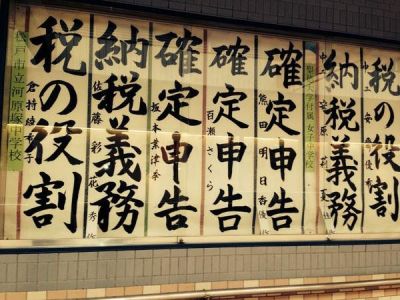 税の役割
納税義務
大学付属女子中学校
確定申告
熊田明日香
確定申告
百瀬さくら
確定申告
坂本
納税義務
佐藤彩花
税の役割
倉持
松戸市立河原塚中学校